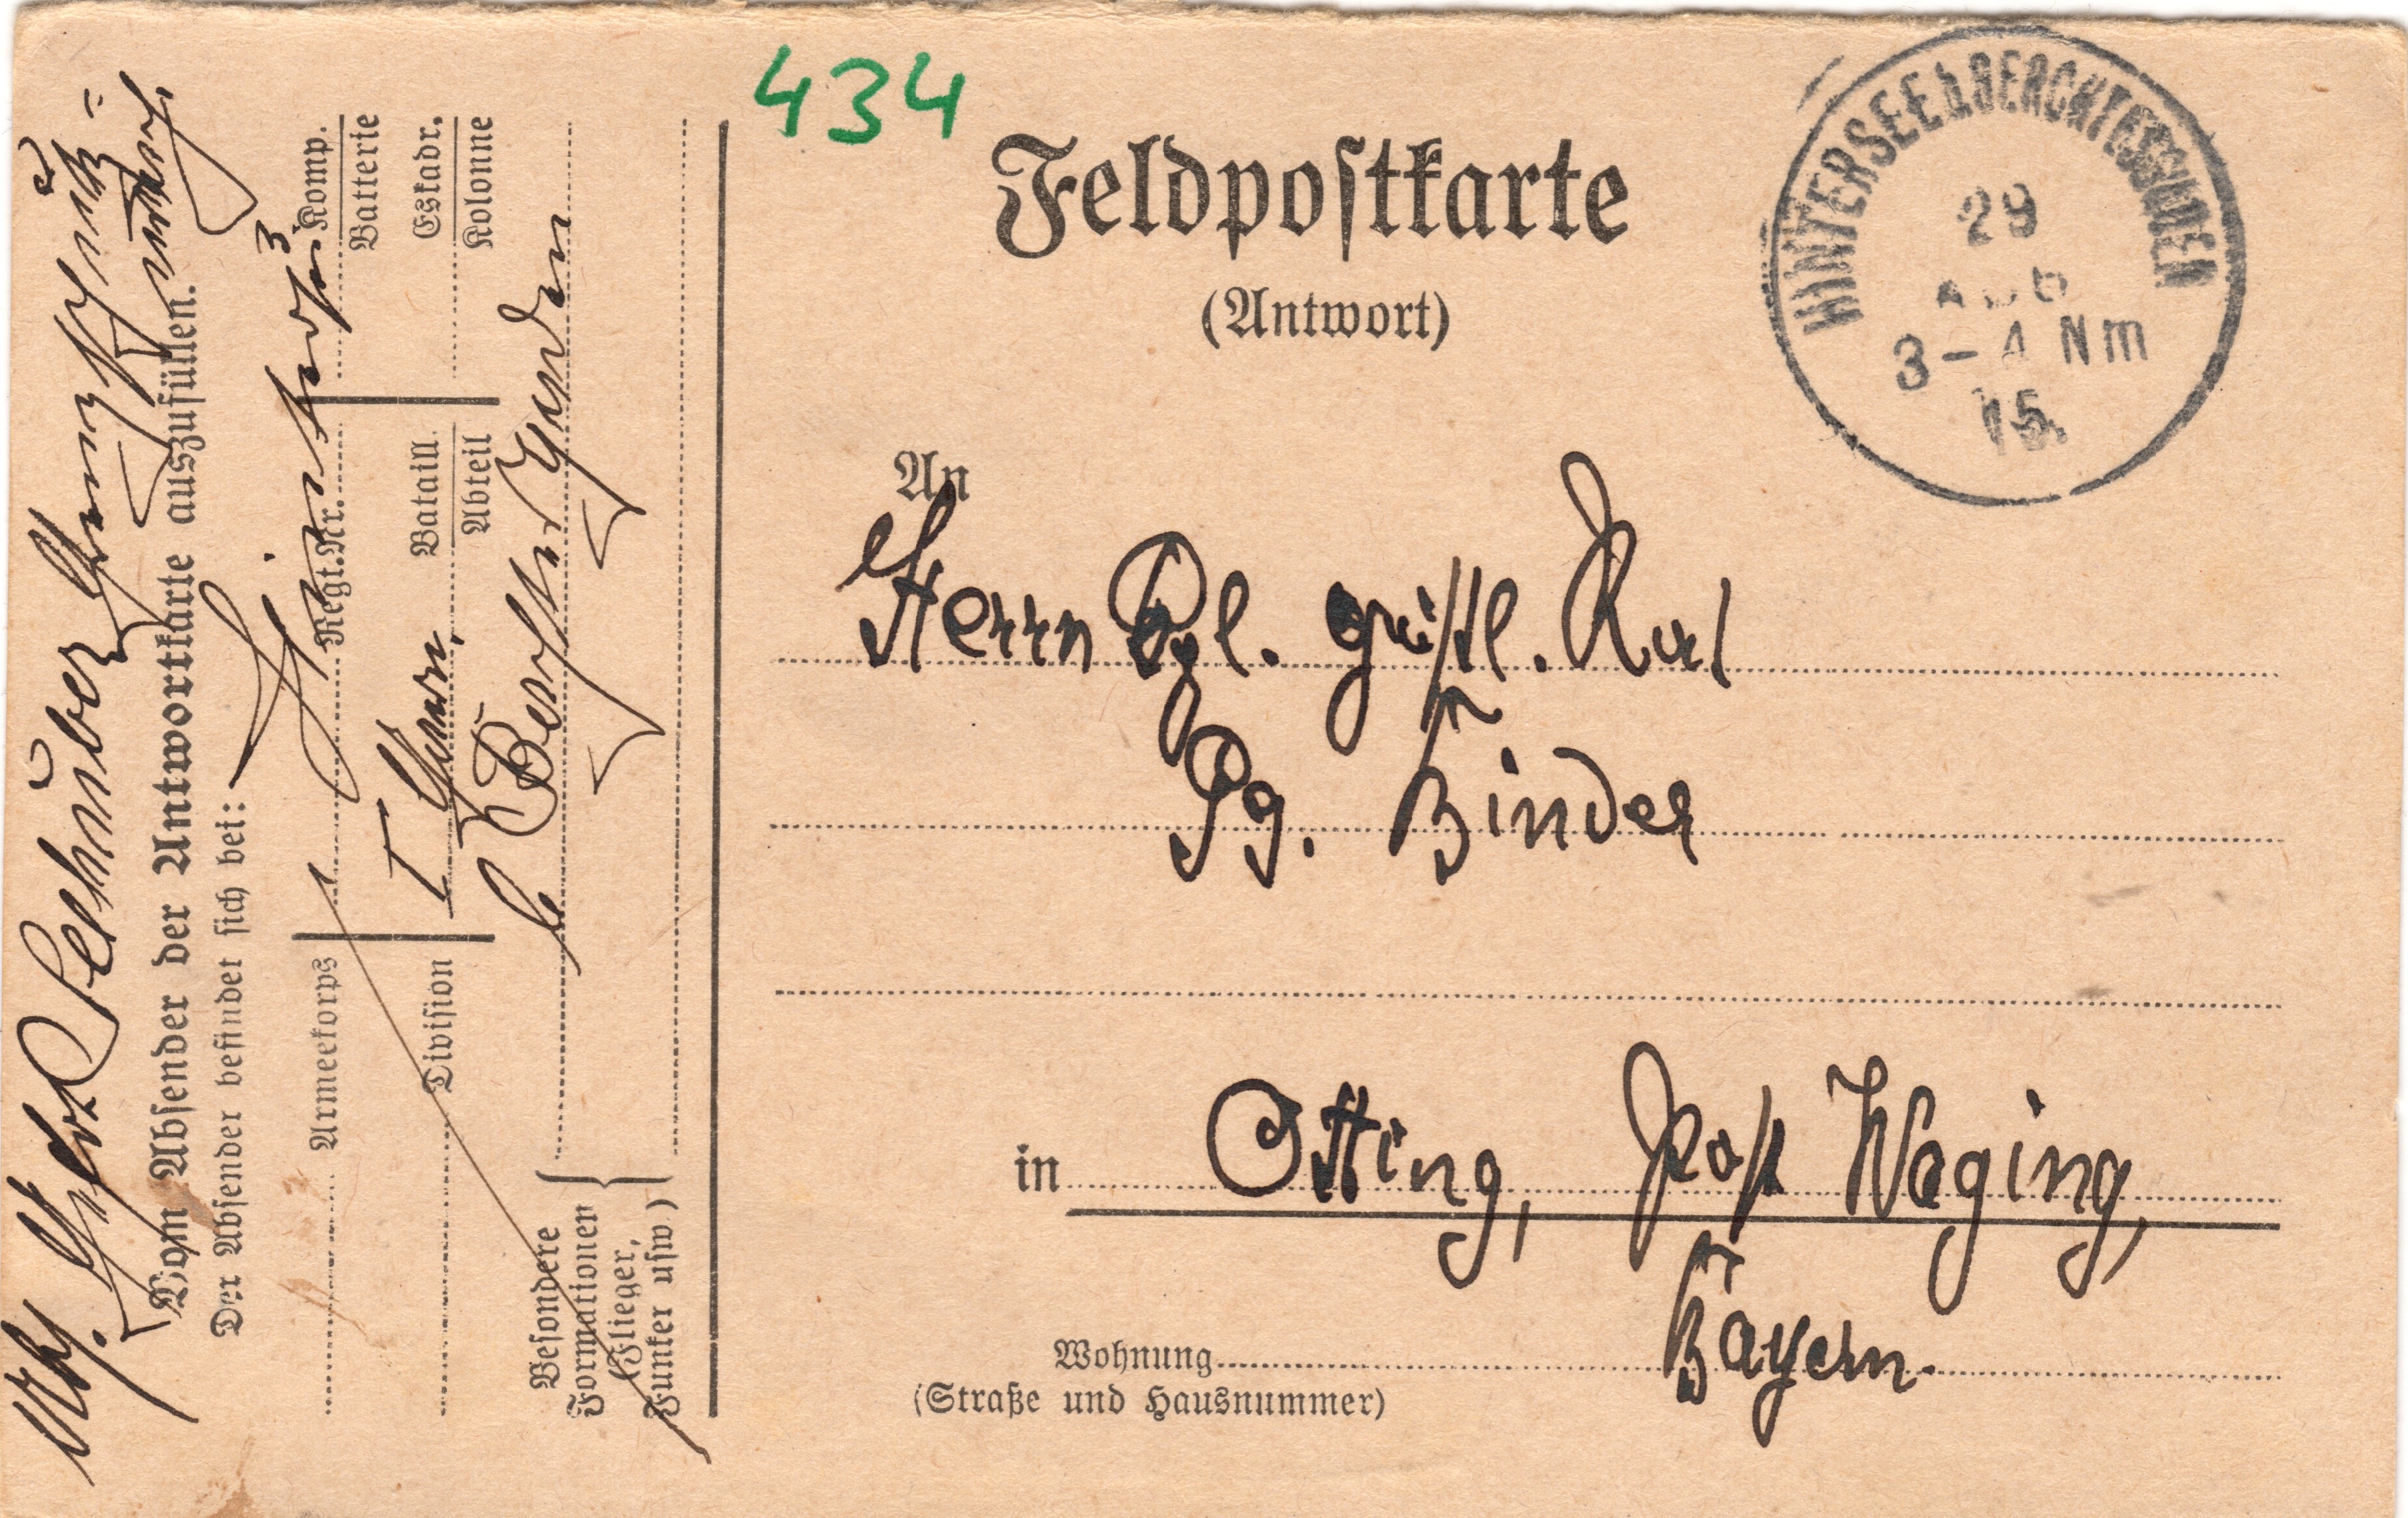 434
Feldpostkarte
(Antwort)
HINTERSEE b. BERCHTESGADEN
29
AUG
3-4 Nm
15.
An
Herrn Kgl. geistl. Rat
Pg. Binder
in Otting, Post Waging,
Bayern.
Wohnung
(Straße und Hausnummer)
Abs. Gefrt Lechhuber Grenzschutz=
Vom Absender der Antwortkarte auszufüllen.
Der Absender befindet sich bei:
Hintersee
Armeekorps
Regt. Nr.
Komp.
Batterie
Division
Bataill.
Abteil
Eskadr.
Kolonne
b/ Berchtesgaden
Besondere
Formationen
(Flieger,
Funker usw)